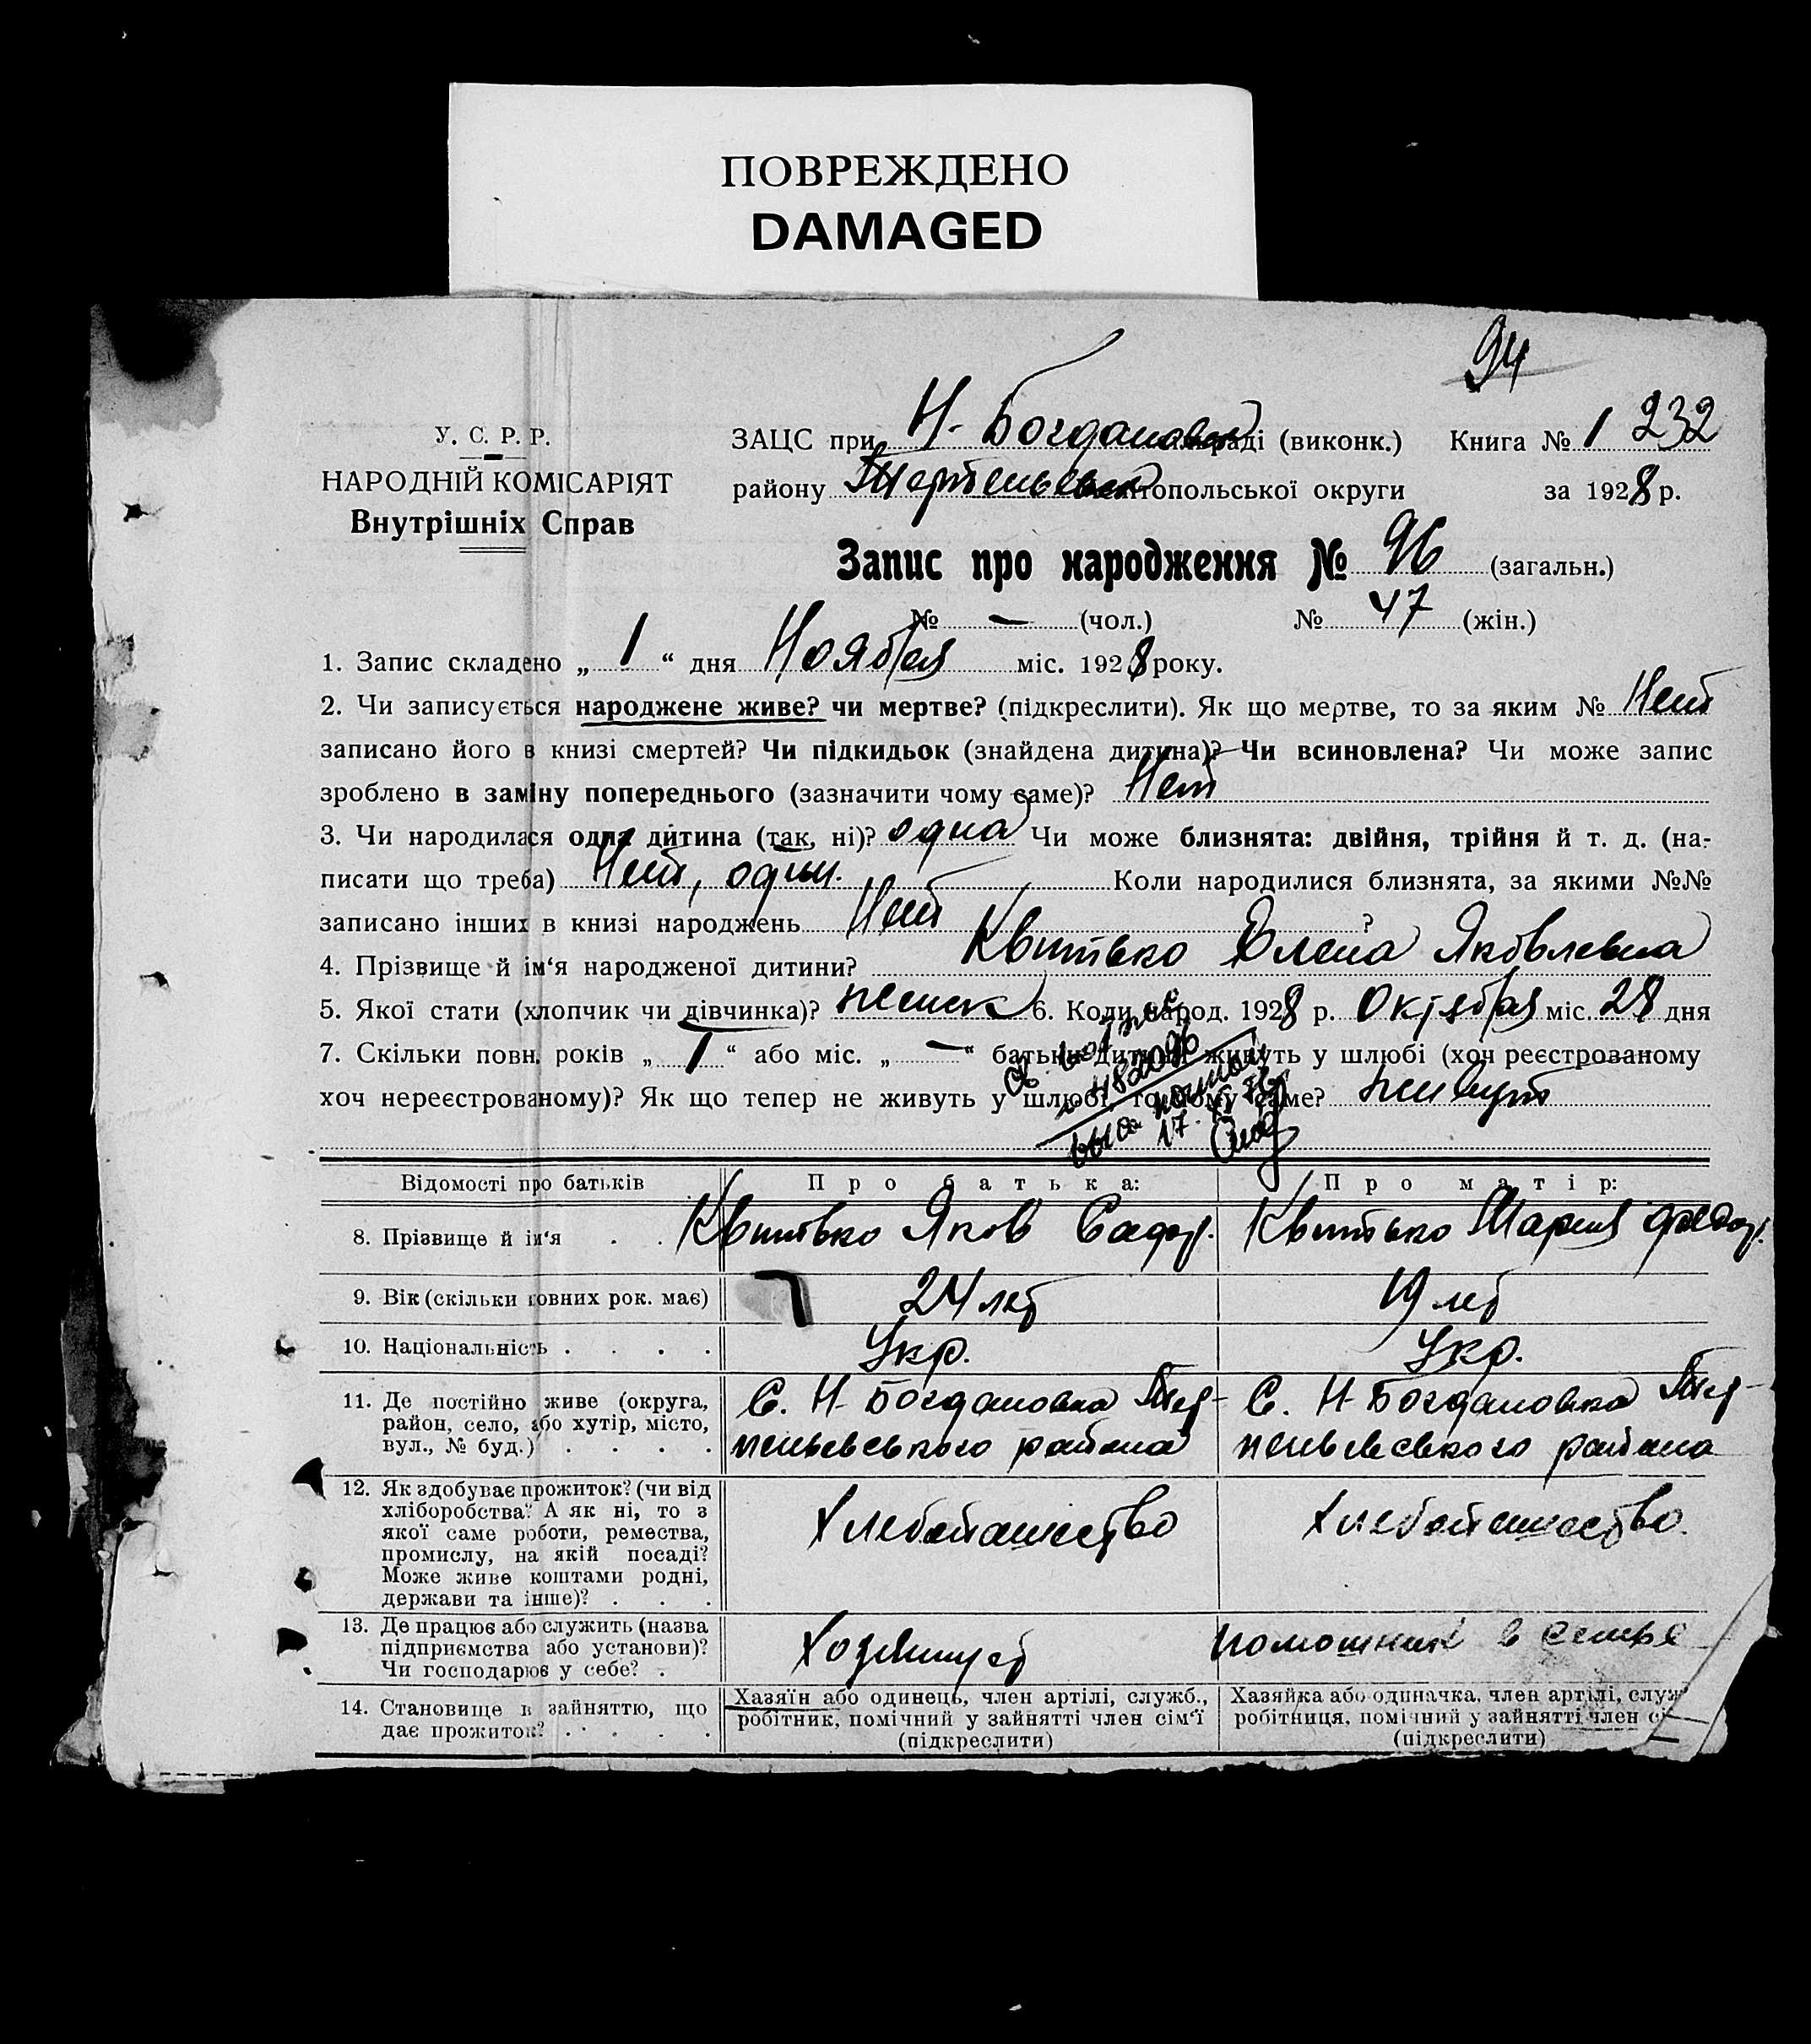 ПОВРЕЖДЕНО
DAMAGED
94
У. С. Р. Р.
НАРОДНІЙ КОМІСАРІЯТ
Внутрішніх Справ
ЗАЦС при Н-Богдановск раді (виконк.) Книга № 1 232
району топольської округи за 1928 р.
Запис про народження № 96 (загальн.)
№ — (чол.) № 47 (жін.)
1. Запис складено „ 1 “ дня Ноября міс. 1928 року.
2. Чи записується народжене живе? чи мертве? (підкреслити). Як що мертве, то за яким № Нет
записано його в книзі смертей? Чи підкидьок (знайдена дитина)? Чи всиновлена? Чи може запис
зроблено в заміну попереднього (зазначити чому саме)? Нет
3. Чи народилася одна дитина (так, ні)? одна Чи може близнята: двійня, трійня й т. д. (на-
писати що треба) Нет, одни. Коли народилися близнята, за якими №№
записано інших в книзі народжень Нет ?
4. Прізвище й ім‘я народженої дитини? Квитько Елена Яковлевна
5. Якої стати (хлопчик чи дівчинка)? женск 6. Коли народ. 1928 р. Октября міс. 28 дня
7. Скільки повн. років „ 1 “ або міс. „ — “ батьки дитини живуть у шлюбі (хоч реєстрованому
хоч нереєстрованому)? Як що тепер не живуть у шлюбі, то чому саме? живут
Відомості про батьків Про батька: Про матір:
8. Прізвище й ім‘я . . Квитько Яков Сафр. Квитько Мария Федор.
9. Вік (скільки повних рок. має) 24 лет 19 лет
10. Національність . . . . Укр. Укр.
11. Де постійно живе (округа,
район, село, або хутір, місто,
вул., № буд.) . . . .
С. Н-Богдановка Тер-
пеньевського района
С. Н-Богдановка Тер-
пеньевського района
12. Як здобуває прожиток? (чи від
хліборобства? А як ні, то з
якої саме роботи, ремества,
промислу, на якій посаді?
Може живе коштами родні,
держави та інше)? . . .
Хлебопашество
Хлебопашество.
13. Де працює або служить (назва
підприємства або установи)?
Чи господарює у себе? .
Хозяинует
помошник в семье
14. Становище в зайняттю, що
дає прожиток? . . . .
Хазяїн або одинець, член артілі, служб.,
робітник, помічний у зайнятті член сім‘ї
(підкреслити)
Хазяйка або одиначка, член артілі, служ
робітниця, помічний у зайнятті член сі
(підкреслити)